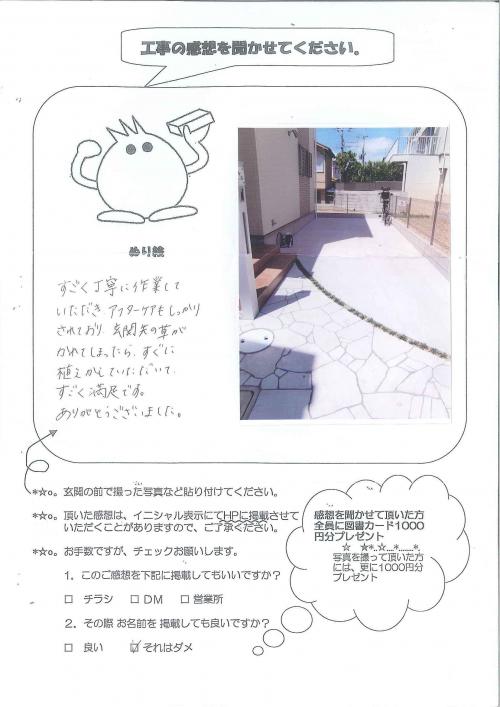 工事の感想を聞かせてください。
ぬり絵
すごく丁寧に作業して
いただき、アフターケアもしっかり
されており、玄関先の草が
かれてしまったら、すぐに
植えかえていただいて、
すごく満足です。
ありがとうございました。
*☆o。玄関の前で撮った写真など貼り付けてください。
*☆o。頂いた感想は、イニシャル表示にてHPに掲載させて
いただくことがありますので、ご了承ください。
*☆o。お手数ですが、チェックお願いします。
1．このご感想を下記に掲載してもいいですか？
□ チラシ □ DM □ 営業所
2．その際 お名前を 掲載しても良いですか？
□ 良い ☑ それはダメ
感想を聞かせて頂いた方
全員に図書カード1000
円分プレゼント
☆ ☆*..☆....*........*.
写真を撮って頂いた方
には、更に1000円分
プレゼント